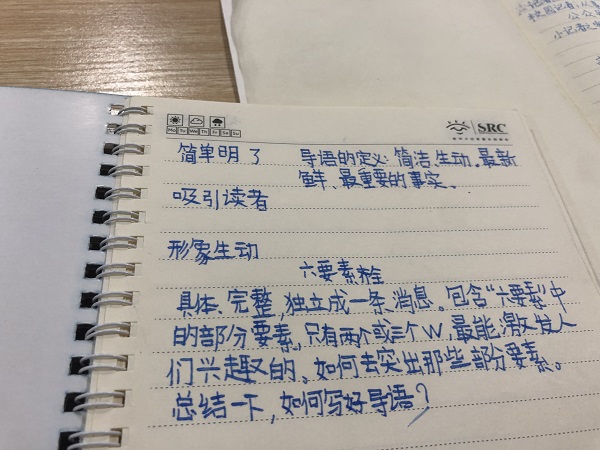 校园记者,从
公众
小记者
Mo Tu We Th Fr Sa Su
SRC
简单明了 导语的定义:简洁,生动,最新
鲜、最重要的事实。
吸引读者
形象生动
六要素栓
具体、完整,独立成一条消息。包含“六要素”中
的部分要素,只有两个或三个W,最能激发人
们兴趣的。如何去突出那些部分要素。
总结一下,如何写好导语?